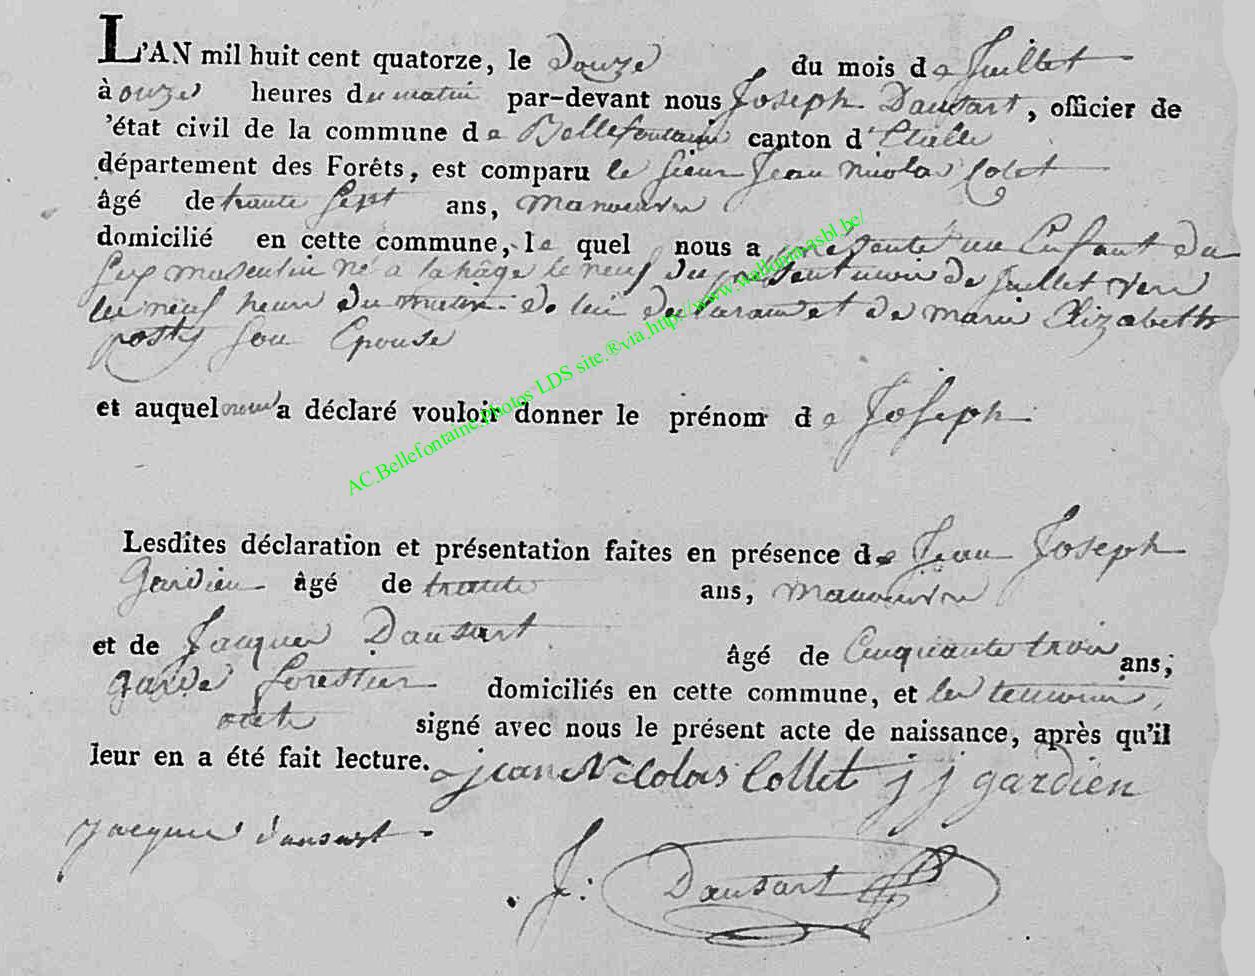 L'AN mil huit cent quatorze, le Douze du mois de Juillet
à onze heures du matin par-devant nous Joseph Dausart, officier de
'état civil de la commune de Bellefontaine canton d'Etalle
département des Forêts, est comparu le sieur Jean Nicolas Colet
âgé de trante sept ans, manouvre
domicilié en cette commune, le quel nous a presenté un Enfant du
sex masculin né a lahâge le neuf du present mois de juillet vers
les neuf heur du matin de lui declarant et de marie Elizabeth
posty son Epouse
et auquel a déclaré vouloir donner le prénom de Joseph
AC.Bellefontaine.Photos LDS site.®via.http://www.wallonia-asbl.be/
Lesdites déclaration et présentation faites en présence de Jean Joseph
Gardien âgé de trante ans, manouvre
et de Jacques Dausart âgé de Cinquante trois ans,
garde forestier domiciliés en cette commune, et les temoins
ont signé avec nous le présent acte de naissance, après qu'il
leur en a été fait lecture. jean Nicolas Collet j j gardien
jacques dausart
J: Dausart